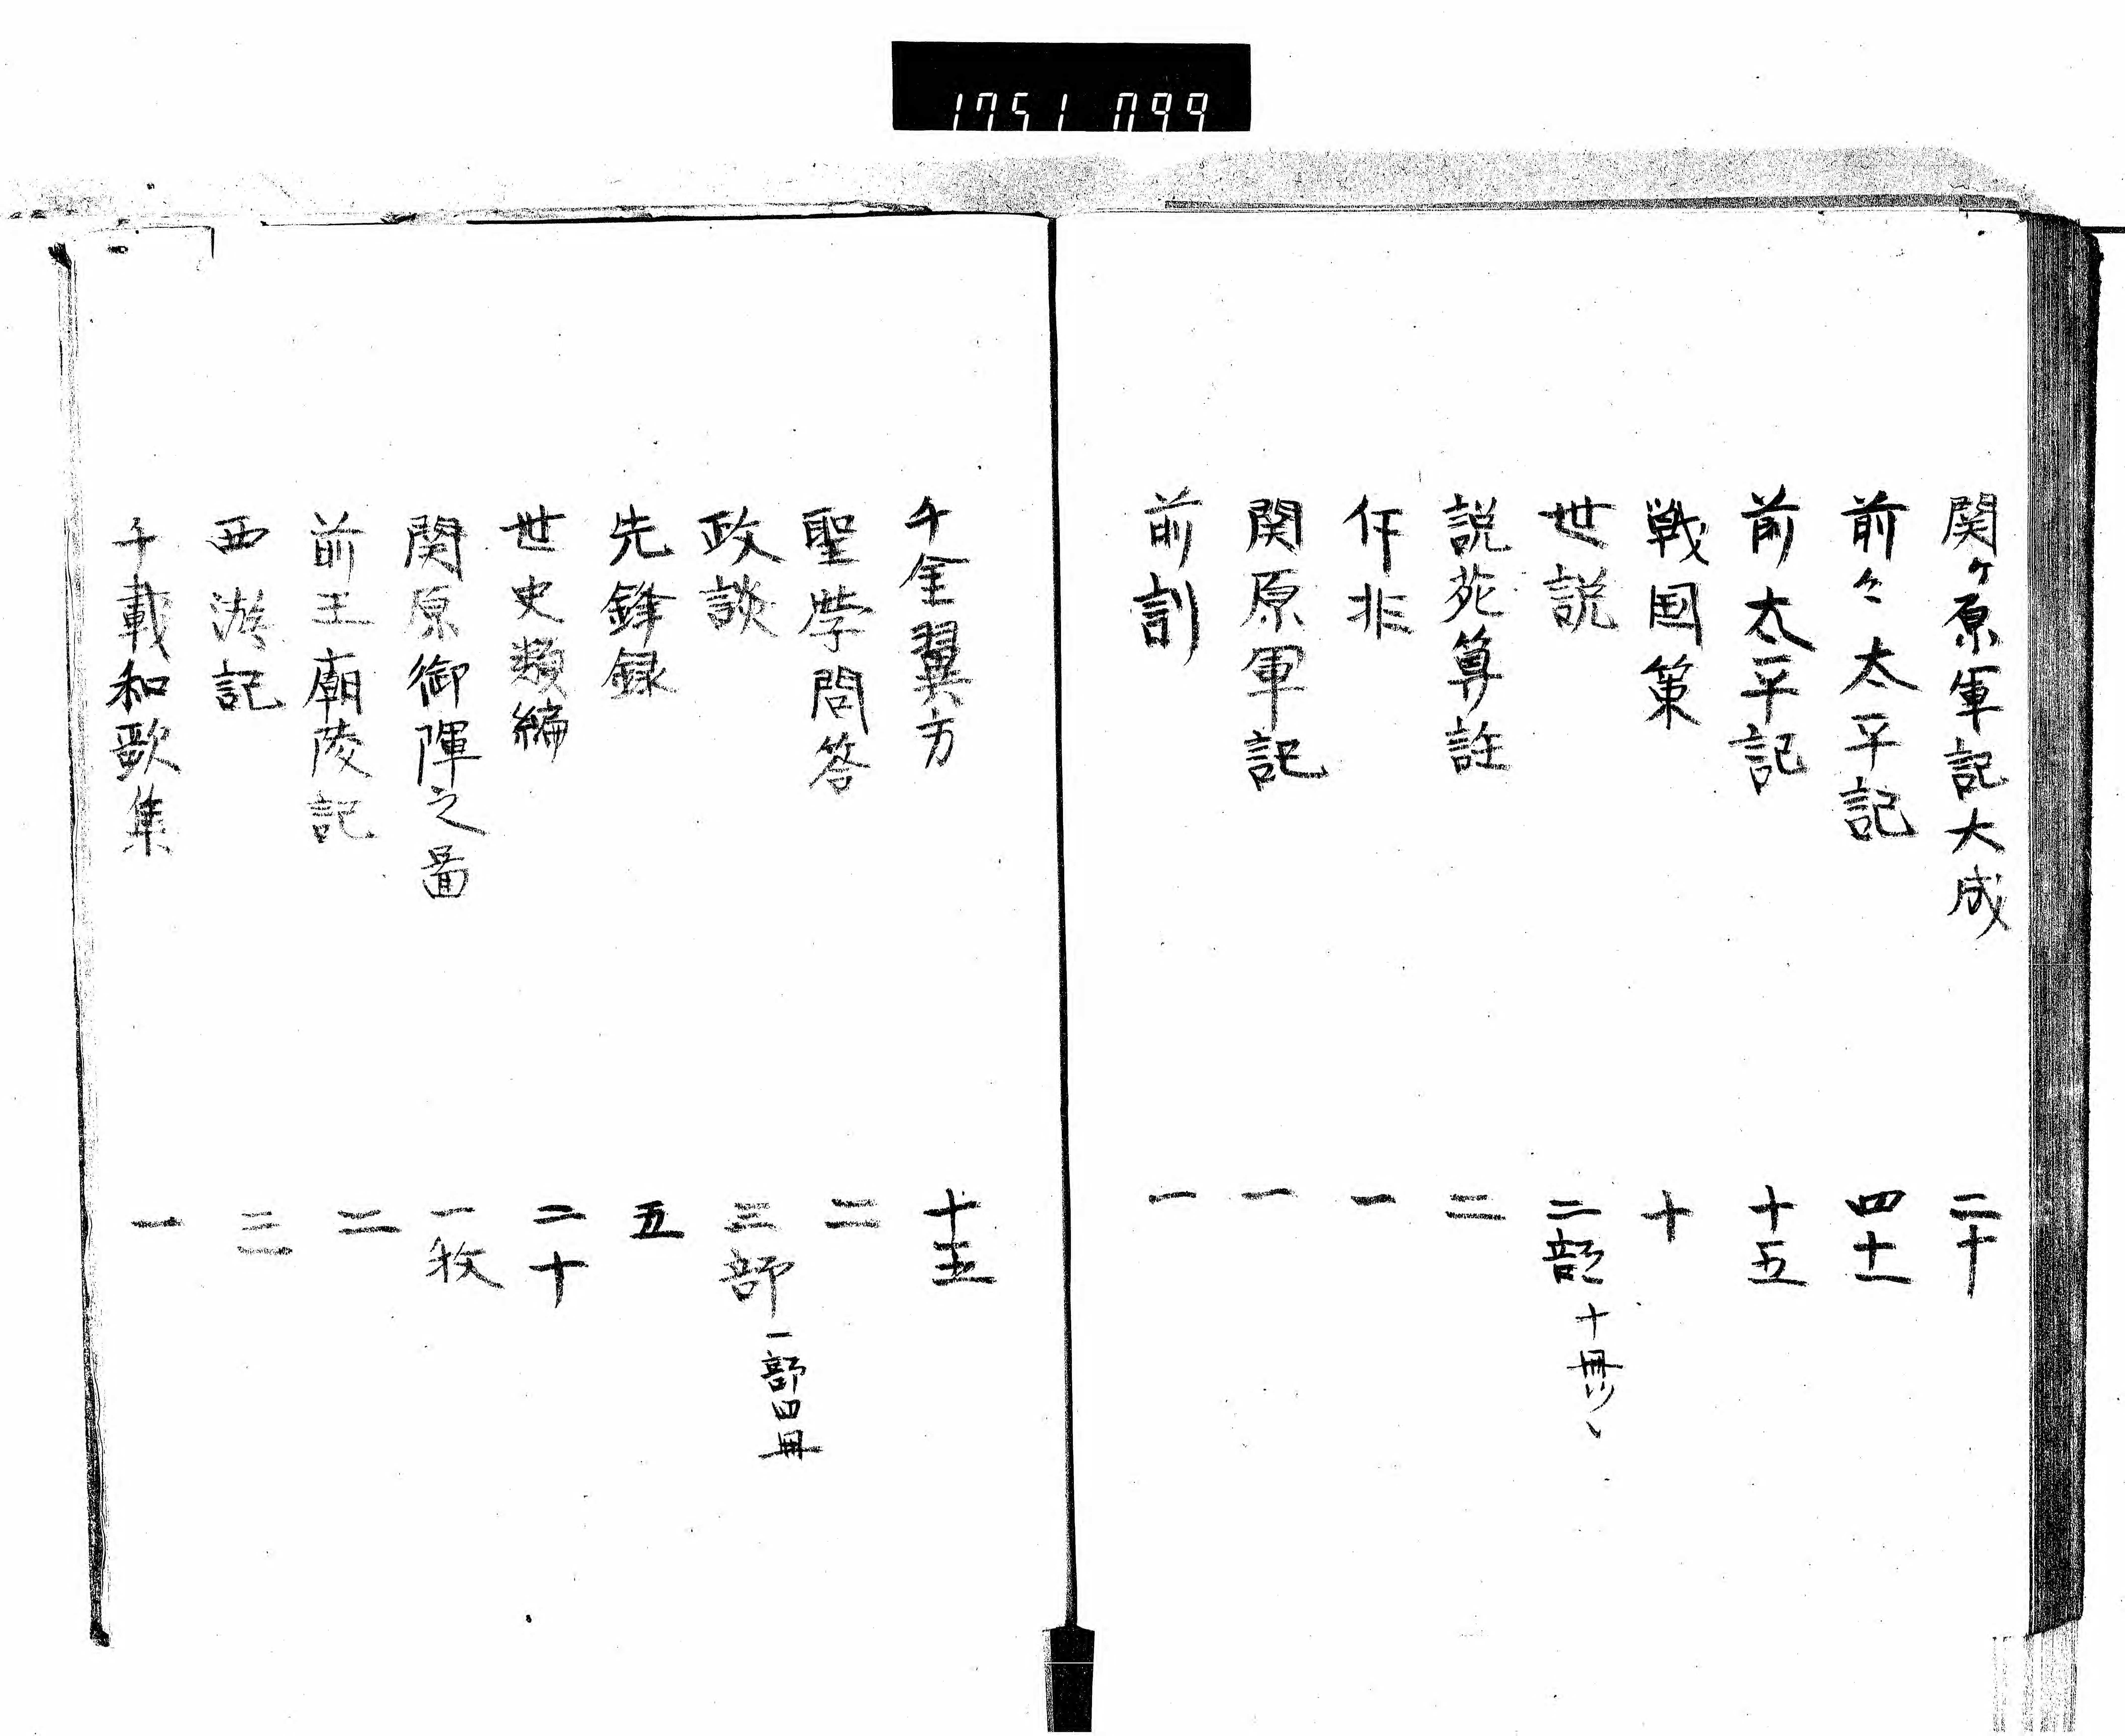 1751 099
関ヶ原軍記大成 二十
前々太平記 四十一
前太平記 十五
戦国策 十
世説 二部 十冊ツヽ
説苑算註 二
作非 一
関原軍記 一
前訓 一
千金翼方 十五
聖学問答 二
政談 三部 一部四冊
先鋒録 五
世史類編 二十
関原御陣之圖 一枚
前王廟陵記 二
西游記 三
千載和歌集 一